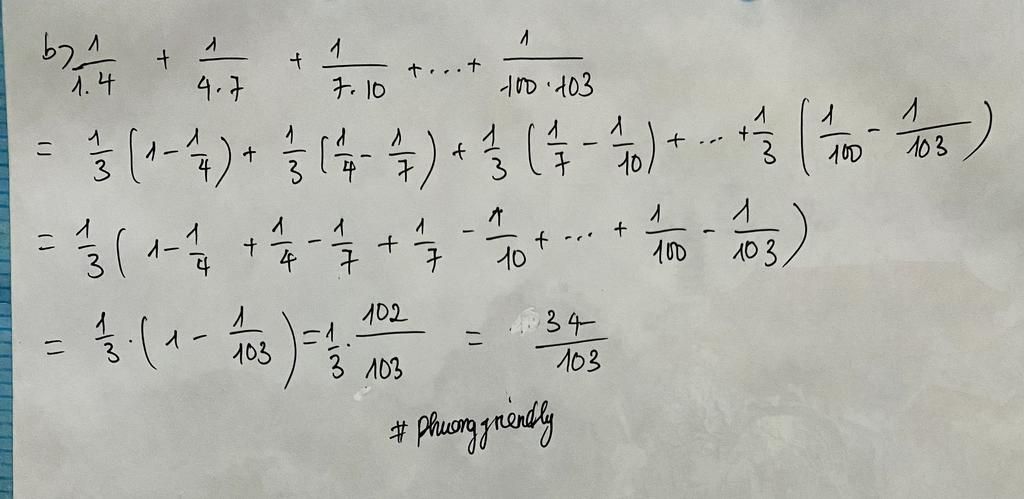 b) 1/1.4 + 1/4.7 + 1/7.10 + ... + 1/100.103
= 1/3 (1 - 1/4) + 1/3 (1/4 - 1/7) + 1/3 (1/7 - 1/10) + ... + 1/3 (1/100 - 1/103)
= 1/3 (1 - 1/4 + 1/4 - 1/7 + 1/7 - 1/10 + ... + 1/100 - 1/103)
= 1/3 . (1 - 1/103) = 1/3 . 102/103 = 34/103
# Phuongfriendly